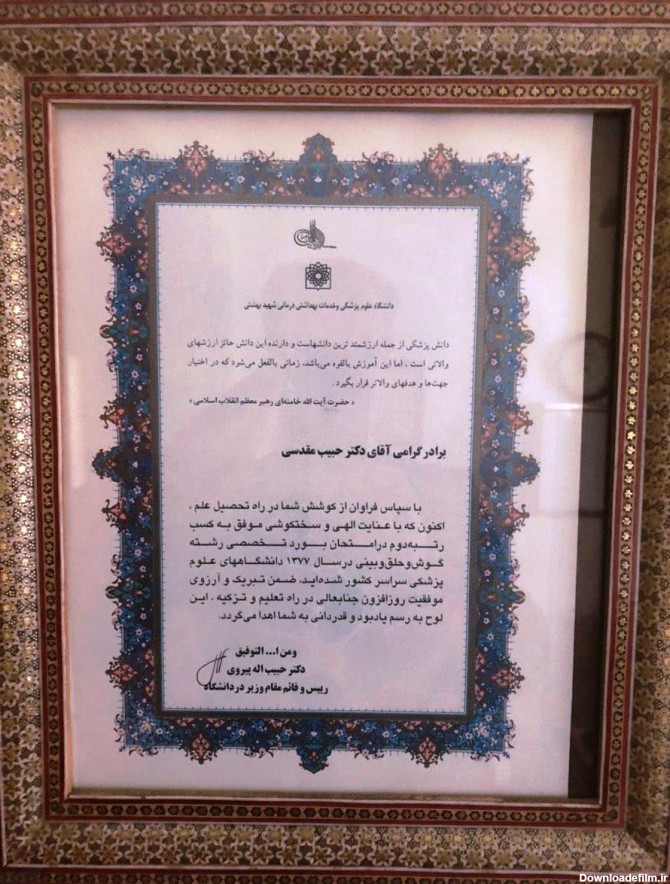 دانشگاه علوم پزشکی و خدمات بهداشتی درمانی شهید بهشتی
دانش پزشکی از جمله ارزشمند ترین دانشهاست و دارنده این دانش حائز ارزشهای
والائی است ، اما این آموزش بالقوه می‌باشد، زمانی بالفعل می‌شود که در اختیار
جهت‌ها و هدفهای والاتر قرار بگیرد .
« حضرت آیت الله خامنه‌ای رهبر معظم انقلاب اسلامی »
برادر گرامی آقای دکتر حبیب مقدسی
با سپاس فراوان از کوشش شما در راه تحصیل علم ،
اکنون که با عنایت الهی و سختکوشی موفق به کسب
رتبه دوم در امتحان بورد تخصصی رشته
گوش و حلق و بینی در سال ۱۳۷۷ دانشگاههای علوم
پزشکی سراسر کشور شده‌اید، ضمن تبریک و آرزوی
موفقیت روزافزون جنابعالی در راه تعلیم و تزکیه ، این
لوح به رسم یادبود و قدردانی به شما اهدا می‌گردد.
ومن ا... التوفیق
دکتر حبیب اله پیروی
رییس و قائم مقام وزیر در دانشگاه
Downloadefilm.ir